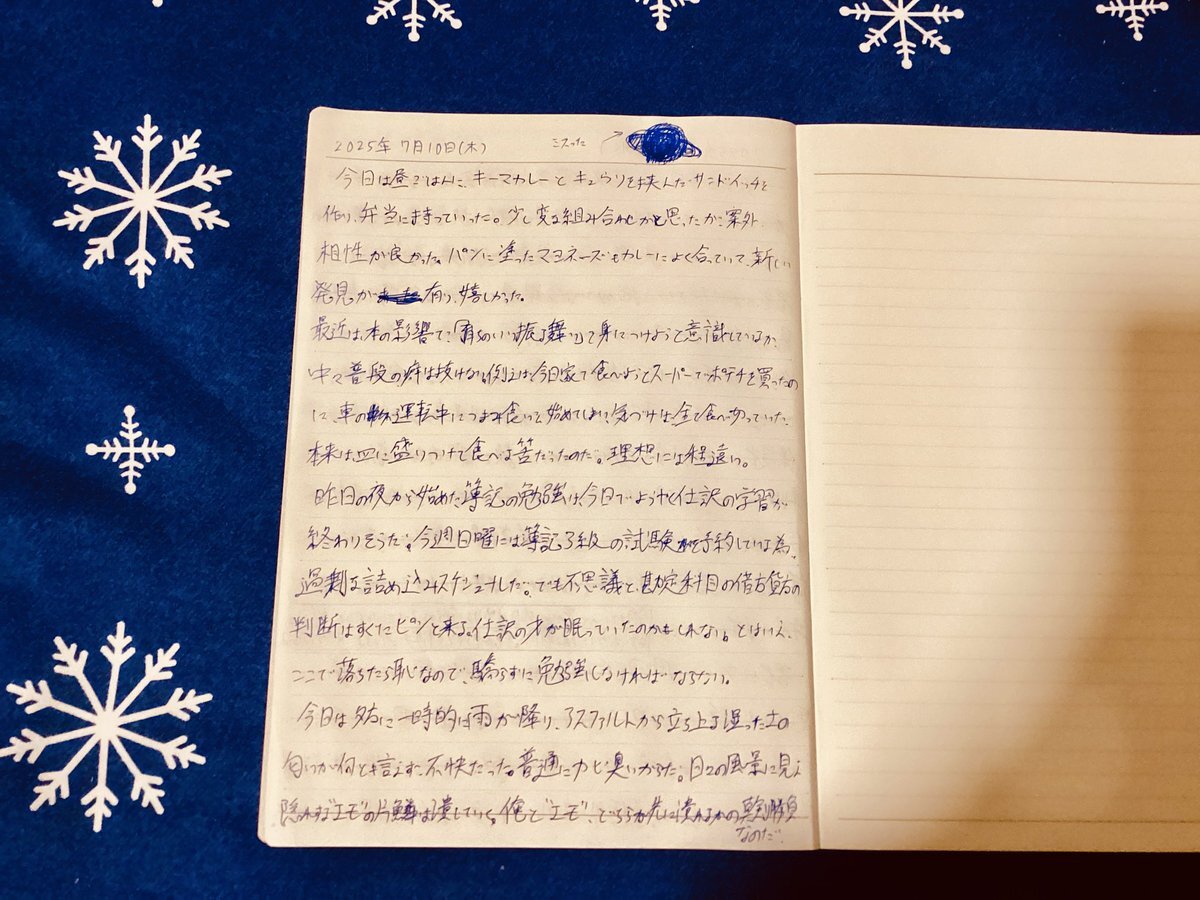 2025年 7月10日(木)
ミスった
今日は昼ごはんに、キーマカレーとキュウリを挟んだサンドイッチを
作り、弁当に持っていった。少し変な組み合わせかと思ったが案外
相性が良かった。パンに塗ったマヨネーズもカレーによく合っていて、新しい
発見が有り、嬉しかった。
最近は、本の影響で、「育ちのいい振る舞い」を身につけようと意識しているが、
中々普段の癖は抜けない。例えば、今日家で食べようとスーパーでポテチを買ったの
に、車の運転中につまみ食いを始めてしまい、気づけば全て食べ切っていた。
本来は、皿に盛りつけて食べる筈だったのだ。理想には程遠い。
昨日の夜から始めた簿記の勉強は、今日でようやく仕訳の学習が
終わりそうだ。今週日曜には簿記3級の試験を予約している為、
過剰な詰め込みスケジュールだ。でも不思議と、勘定科目の借方貸方の
判断はすぐにピンと来る。仕訳の才が眠っていたのかもしれない。とはいえ、
ここで落ちたら恥なので、驕らずに勉強しなければならない。
今日は夕方に一時的な雨が降り、アスファルトから立ち上る湿った土の
匂いが何と言えず不快だった。普通にカビ臭いからだ。日々の風景に見え
隠れする"エモ"の片鱗は潰していく。俺と"エモ"、どちらが先に潰れるかの真剣勝負
なのだ。